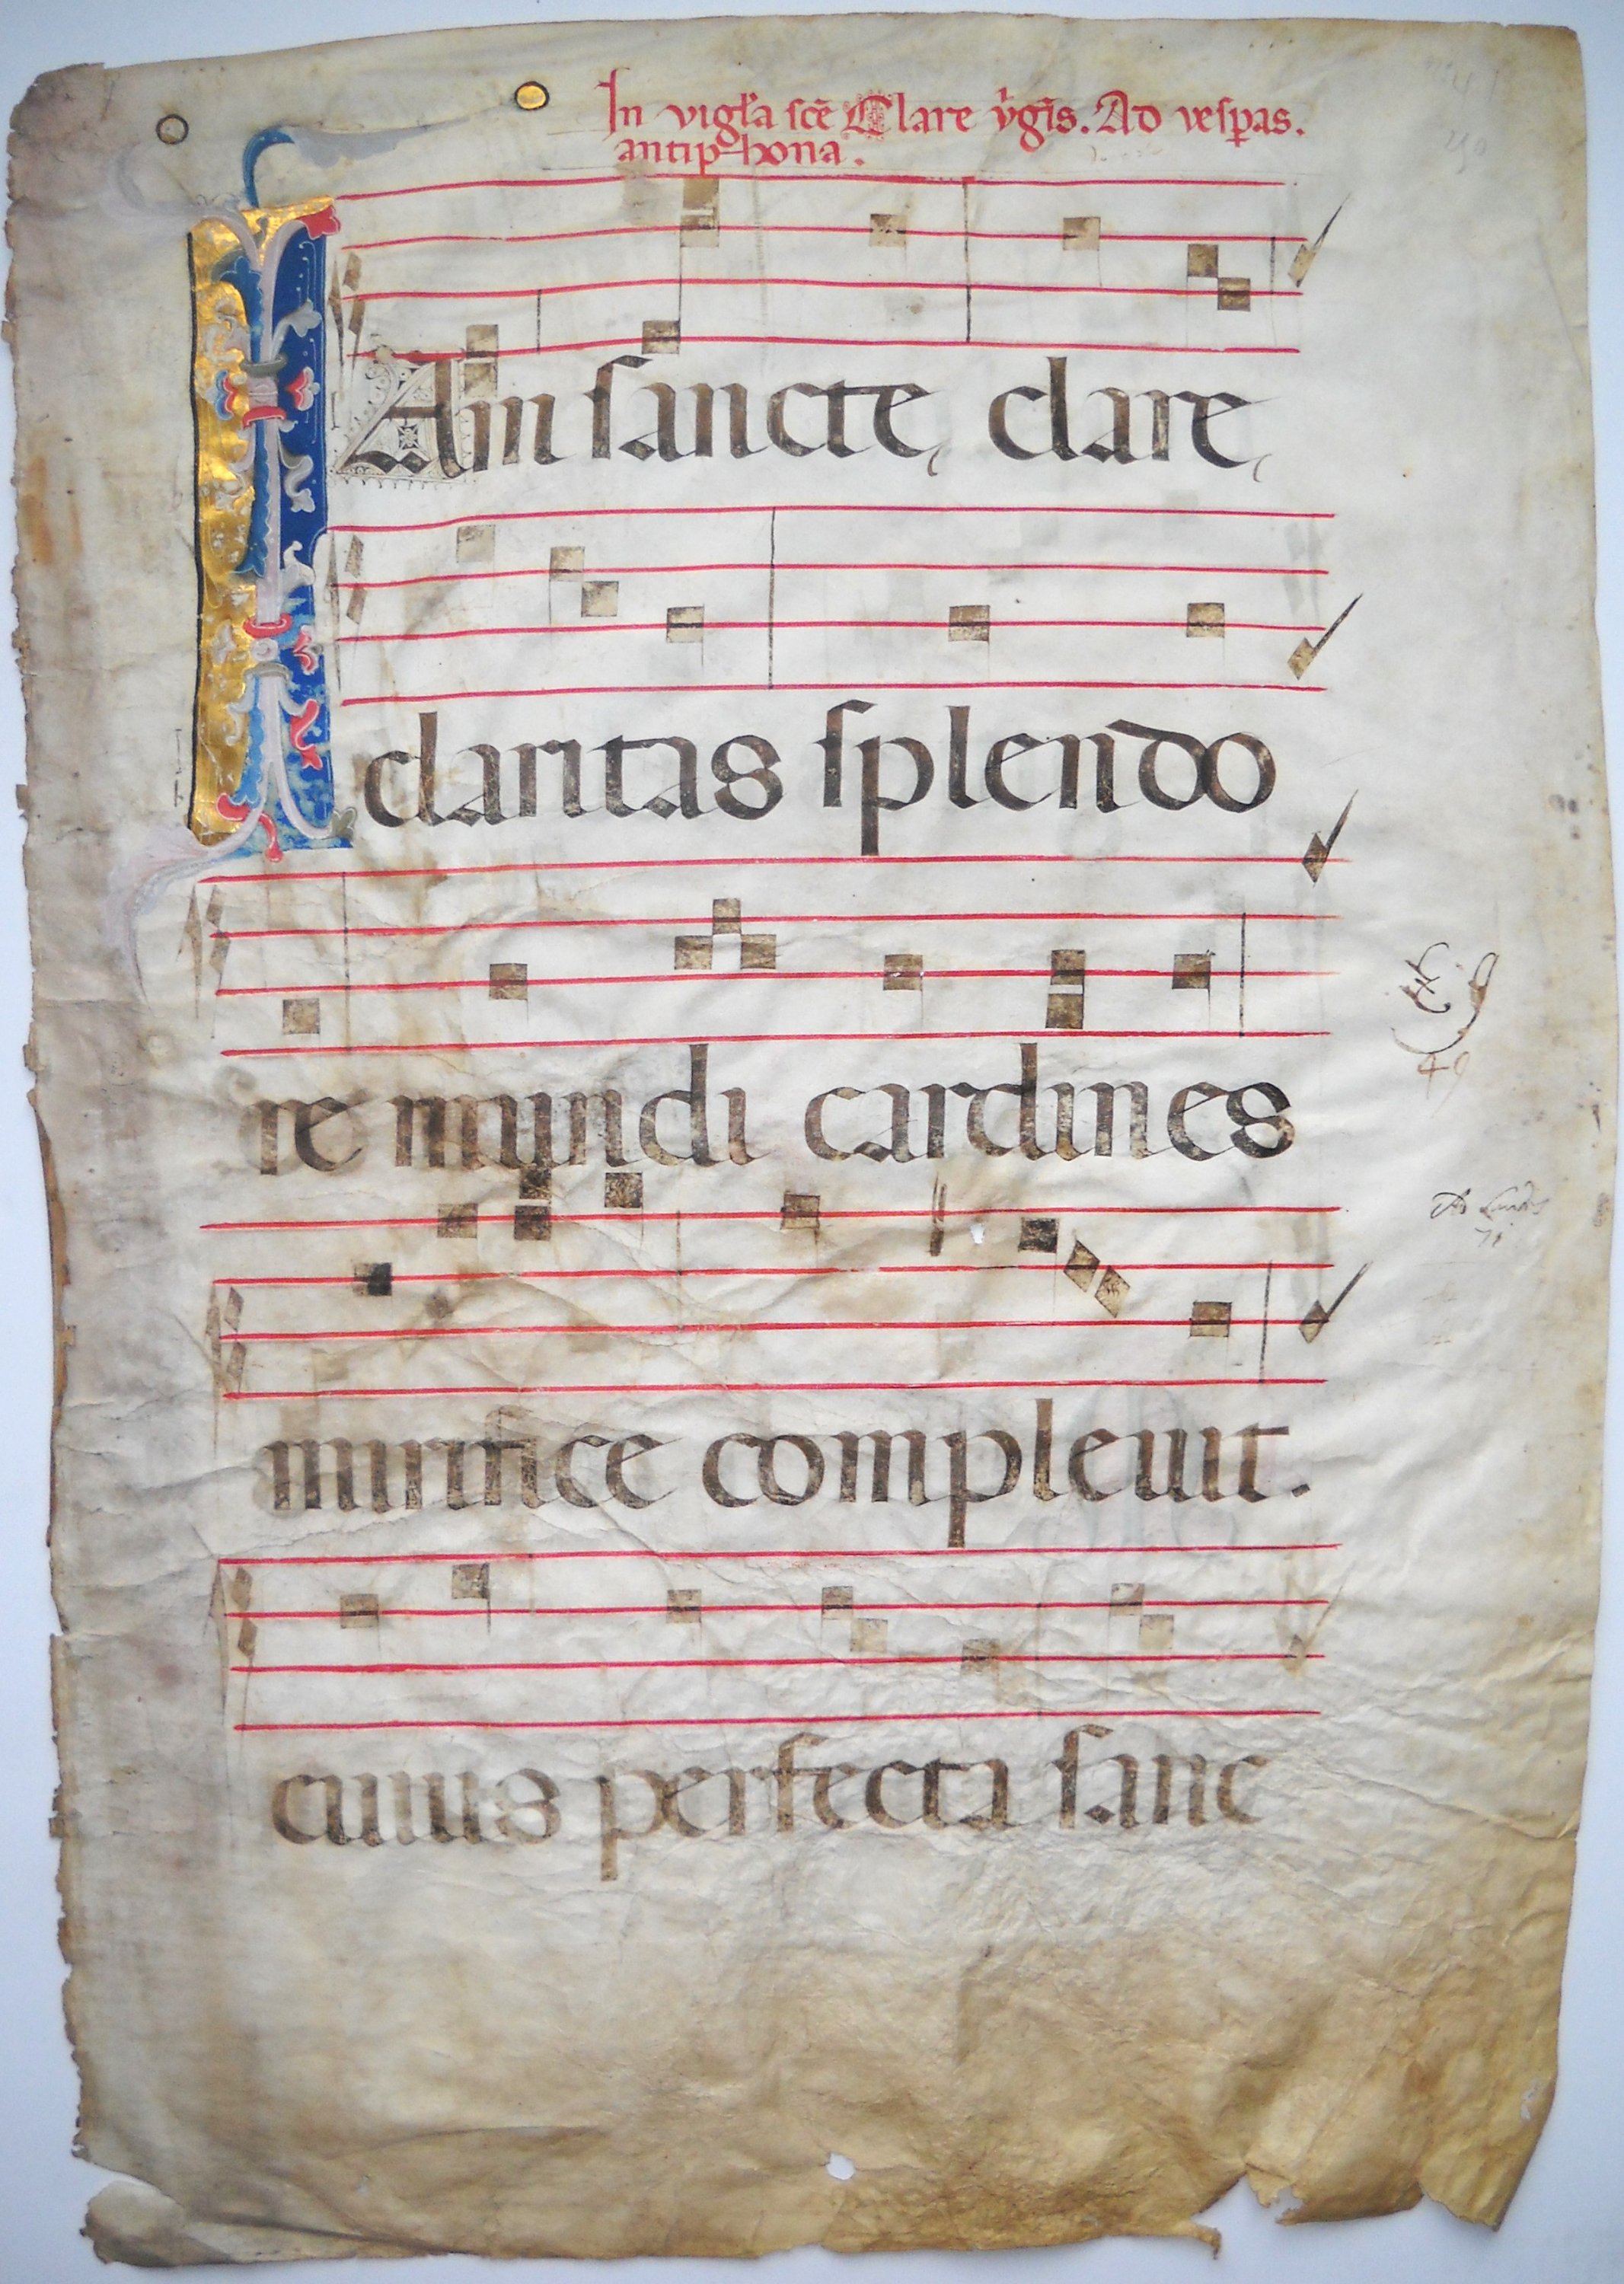 In vigl'a sce Clare v̾gis. Ad vespas.
antiphona.
IAm sancte, clare,
claritas splendo
re mundi cardines
mirifice compleuit.
cuius perfecta sanc
49